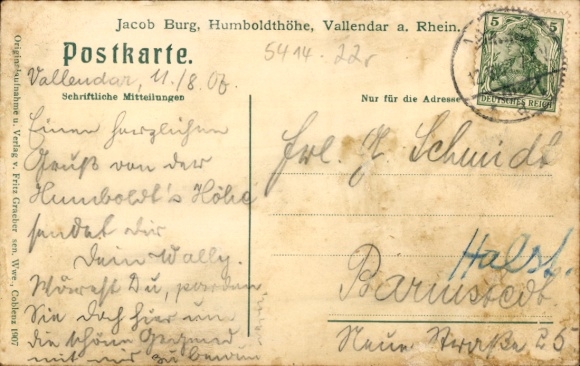 Jacob Burg, Humboldthöhe, Vallendar a. Rhein.
Postkarte.
5414. 22
Vallendar, 11./8. 07.
Schriftliche Mitteilungen
Nur für die Adresse
5 5
DEUTSCHES REICH
Einen herzlichen
Gruß von der
Humboldt's Höhe
sendet dir
Dein Wally.
Du,
Sie doch hier um
die schöne Gegend
mit mir zu
Frl. Schmidt
Halst.
Barmstedt
Neue Straße 25
Originalaufnahme u. Verlag v. Fritz Graeber sen. Wwe., Coblenz 1907